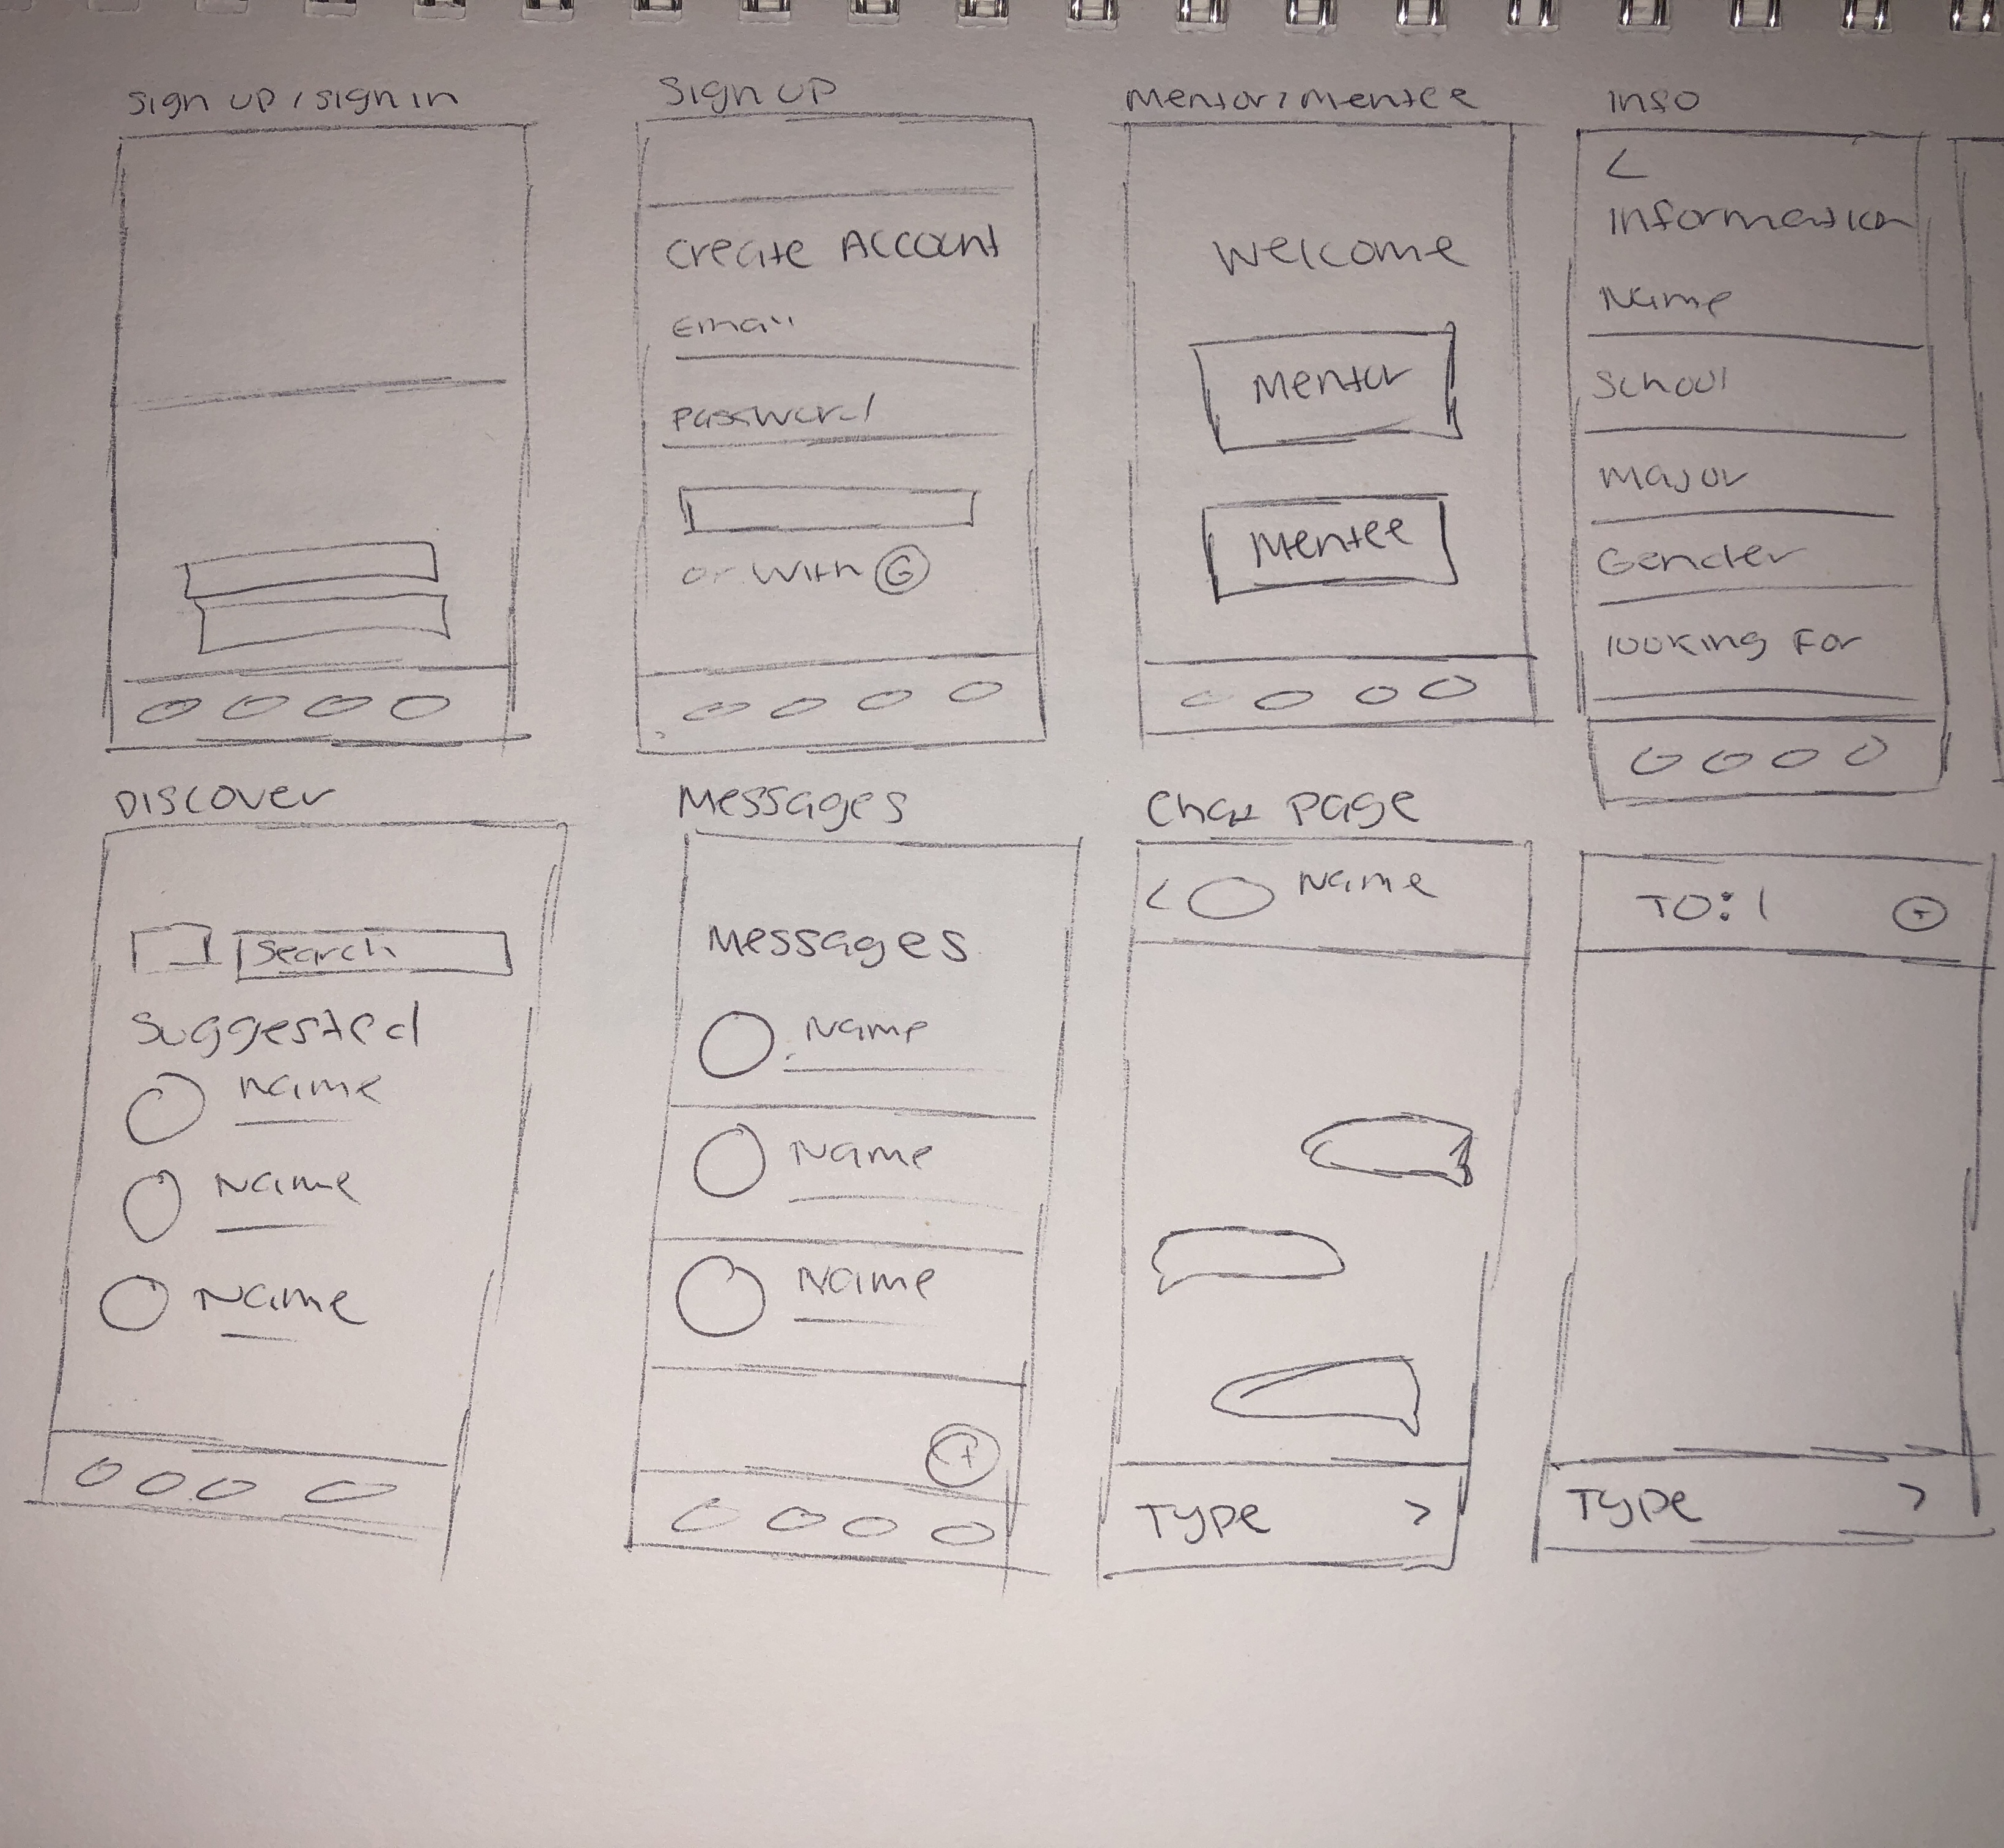 Sign up / sign in
Sign up
Create Account
Email
Password
or with G
Mentor/mentee
Welcome
Mentor
Mentee
Info
<
Information
Name
School
Major
Gender
looking for
Discover
Search
Suggested
Name
Name
Name
Messages
Messages
Name
Name
Name
+
Chat page
< Name
Type >
To: | +
Type >